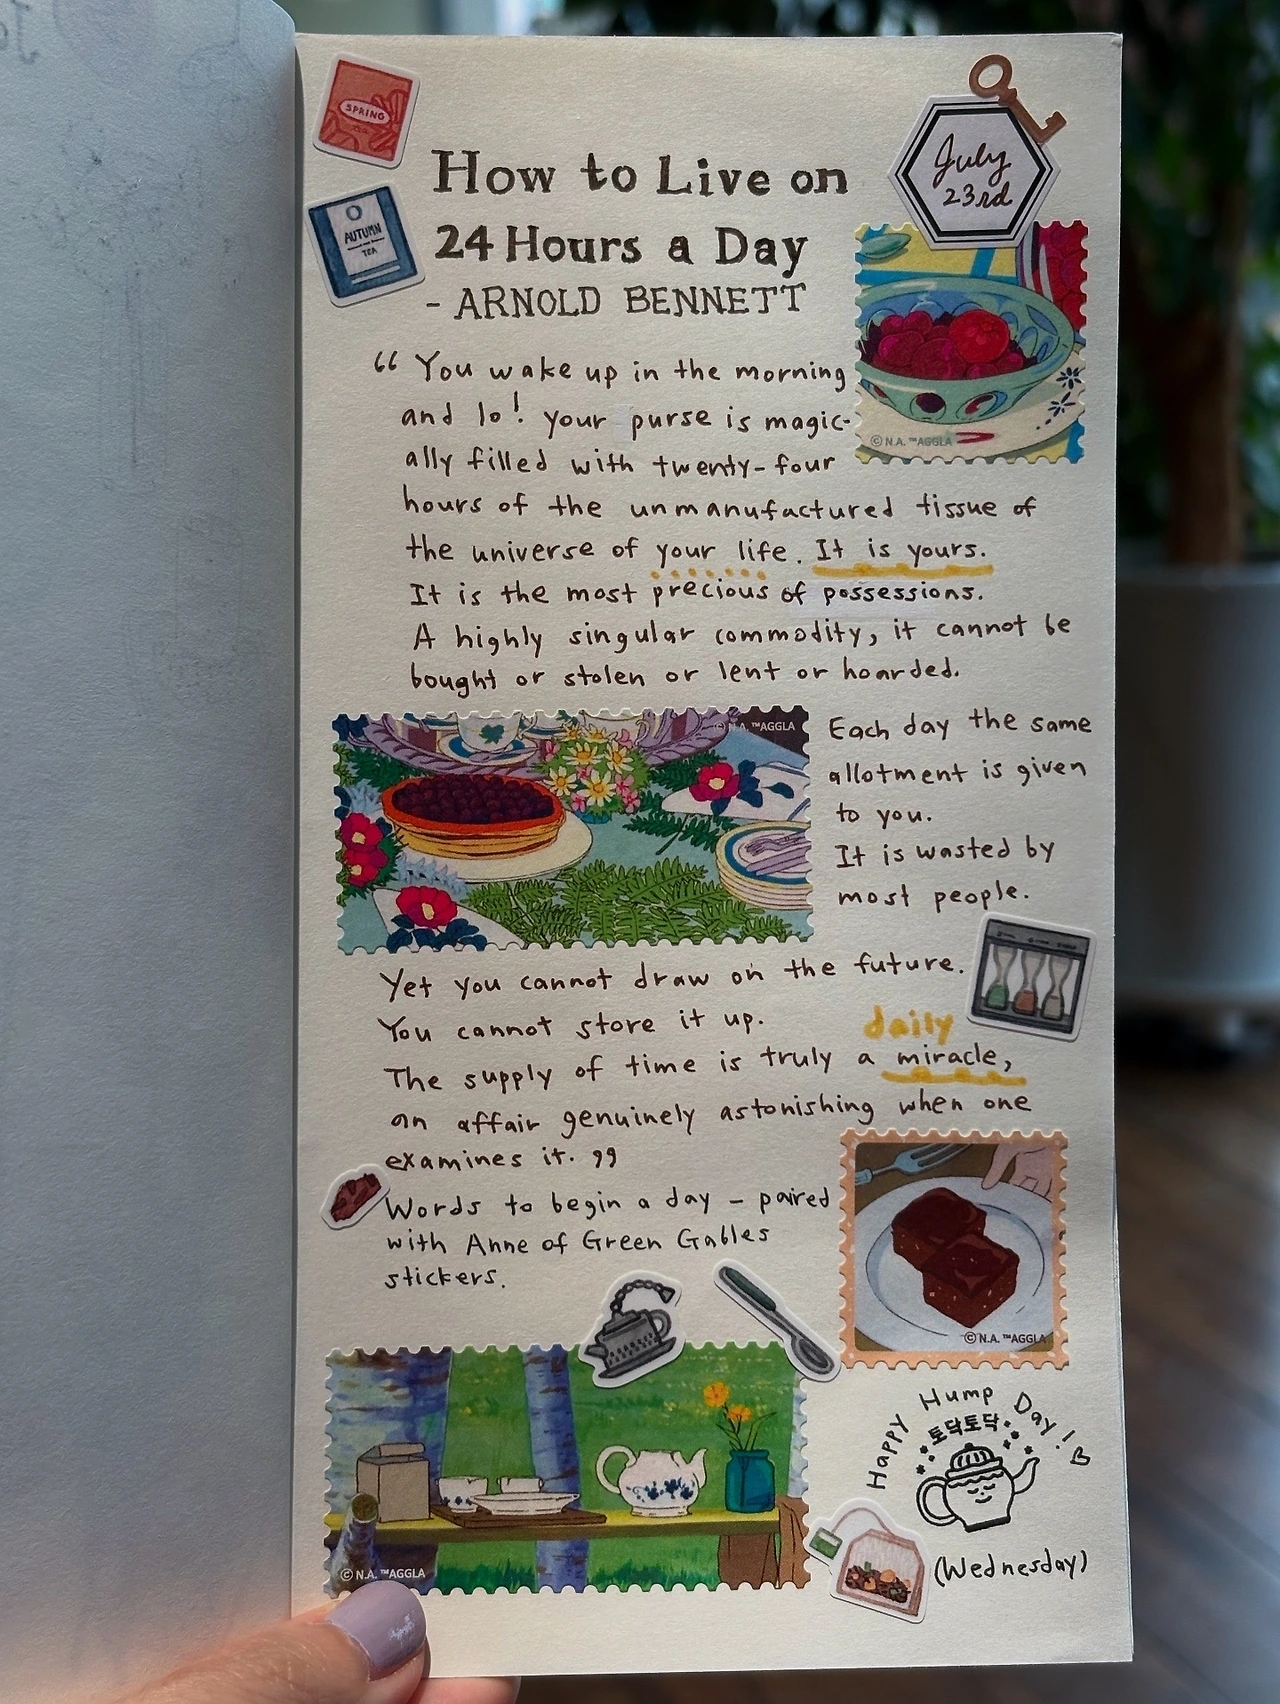 SPRING
tea
AUTUMN
TEA
July
23rd
How to Live on
24 Hours a Day
- ARNOLD BENNETT
“ You wake up in the morning
and lo! your purse is magic-
ally filled with twenty-four
hours of the unmanufactured tissue of
the universe of your life. It is yours.
It is the most precious of possessions.
A highly singular commodity, it cannot be
bought or stolen or lent or hoarded.
© N.A. ™AGGLA
N.A. ™AGGLA
Each day the same
allotment is given
to you.
It is wasted by
most people.
Yet you cannot draw on the future.
You cannot store it up.
daily
The supply of time is truly a miracle,
an affair genuinely astonishing when one
examines it. ”
Words to begin a day – paired
with Anne of Green Gables
stickers.
© N.A. ™AGGLA
Happy Hump Day! ♡
토닥토닥
© N.A. ™AGGLA
(Wednesday)